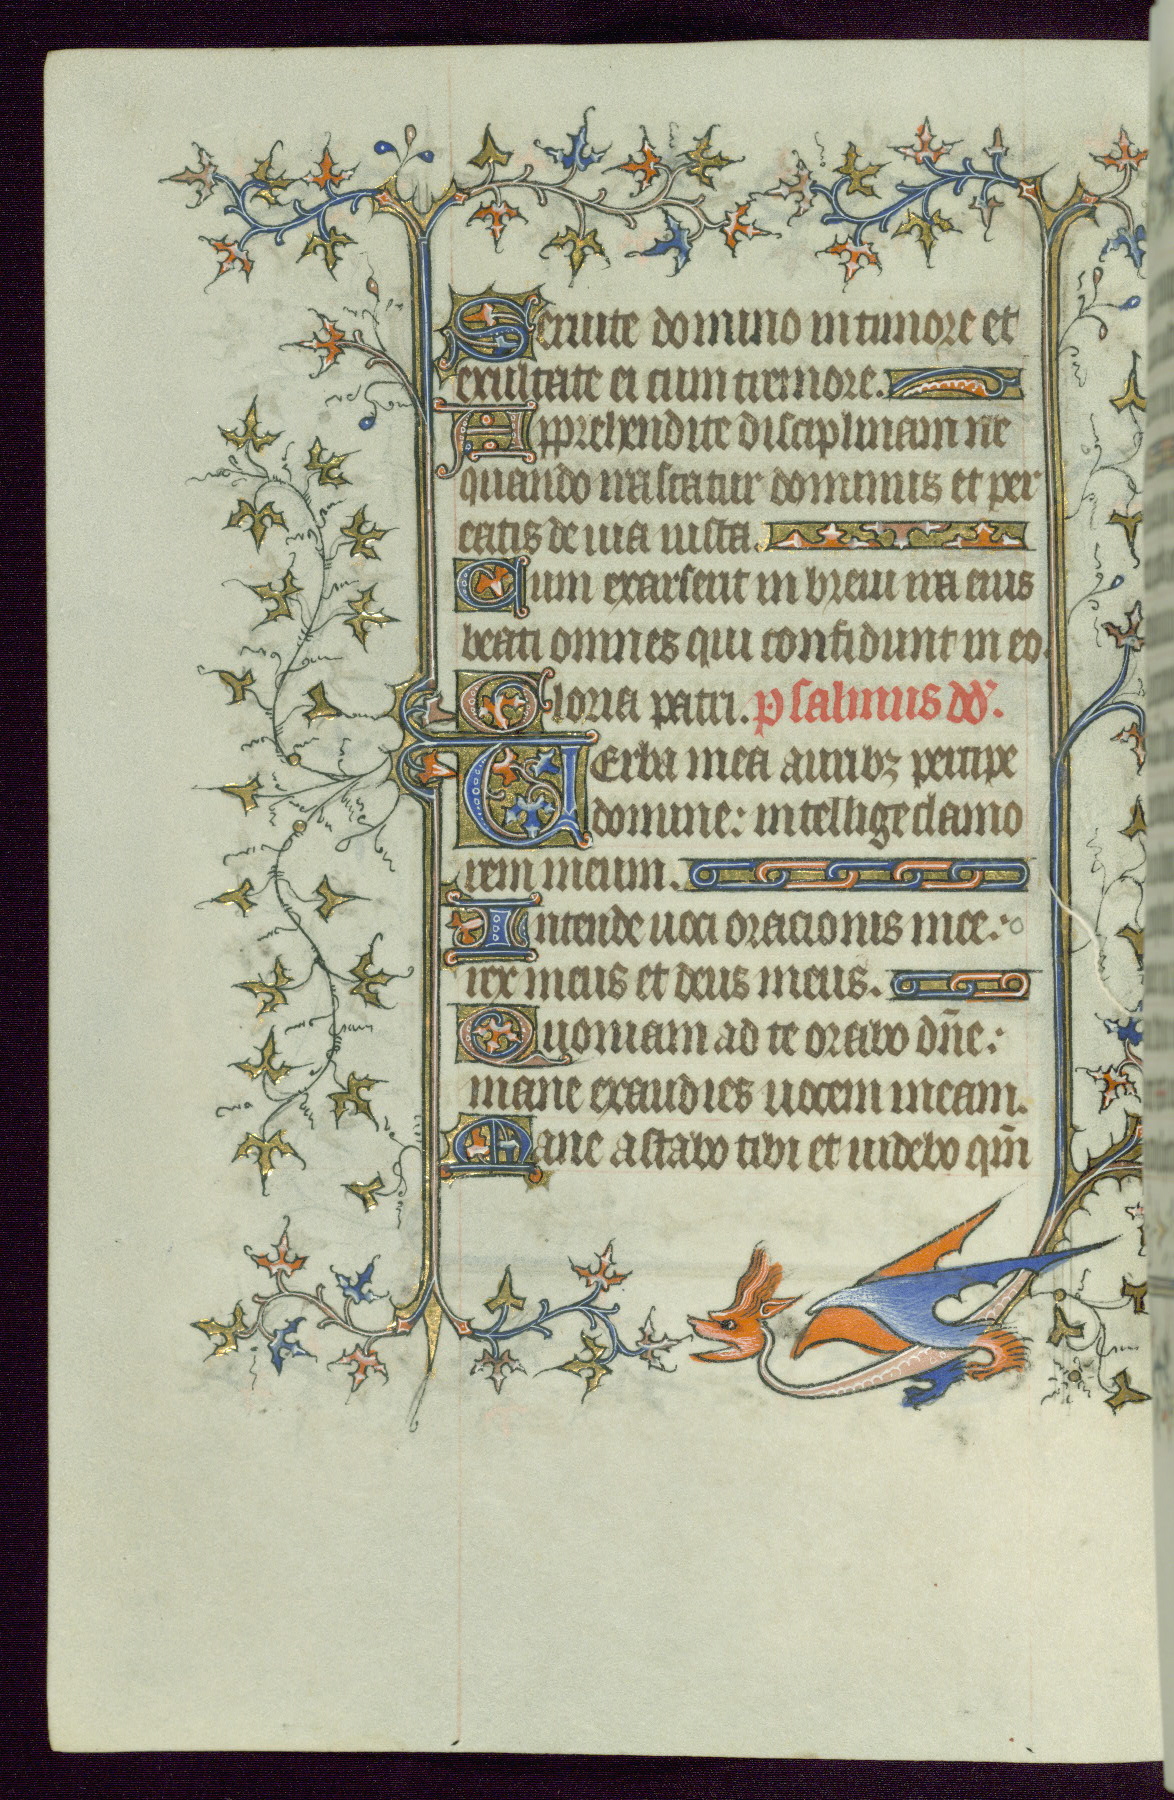 Seruite domino in timore et
exultate ei cum tremore.
Apprehendite disciplinam ne
quando irascatur dominus et per
eatis de uia iusta.
Cum exarserit in breui ira eius
beati omnes qui confidunt in eo.
Gloria patri. psalmus dd'.
Uerba mea auribz percipe
domine: intellige clamo
rem meum.
Intende uoci oracionis mee:
rex meus et deus meus.
Quoniam ad te orabo dn̄e:
mane exaudies uocem meam.
Mane astabo tibi et uidebo qm̄